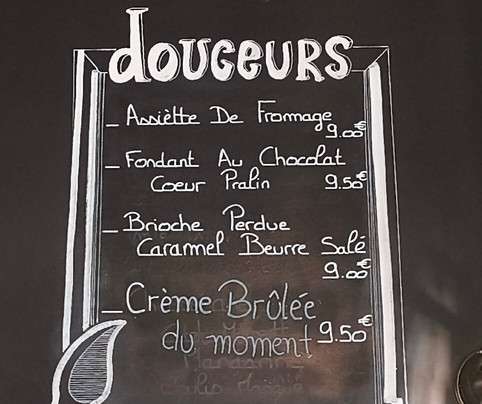 douceurs
_ Assiètte De Fromage
9.00€
_ Fondant Au Chocolat
Coeur Pralin 9.50€
_ Brioche Perdue
Caramel Beurre Salé
9.00€
_ Crème Brûlée
du moment 9.50€